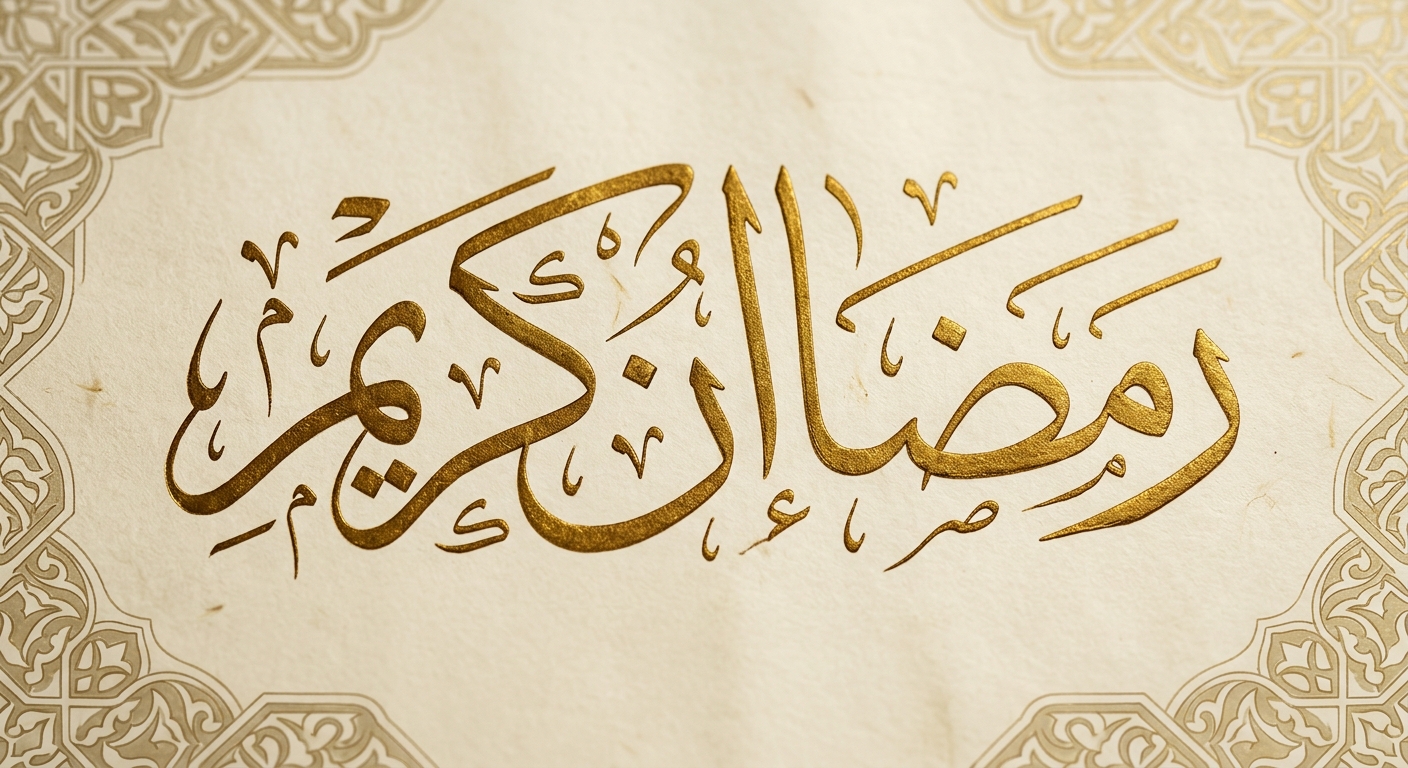 رمضاان كريم